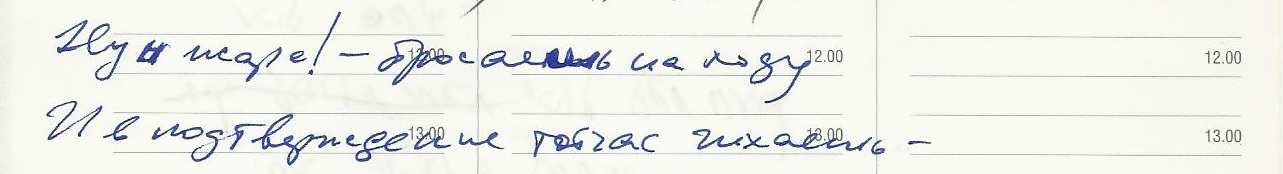 Ну и жара! – бросаешь на ходу
12.00 12.00 12.00
И в подтверждение тотчас чихаешь –
13.00 13.00 13.00